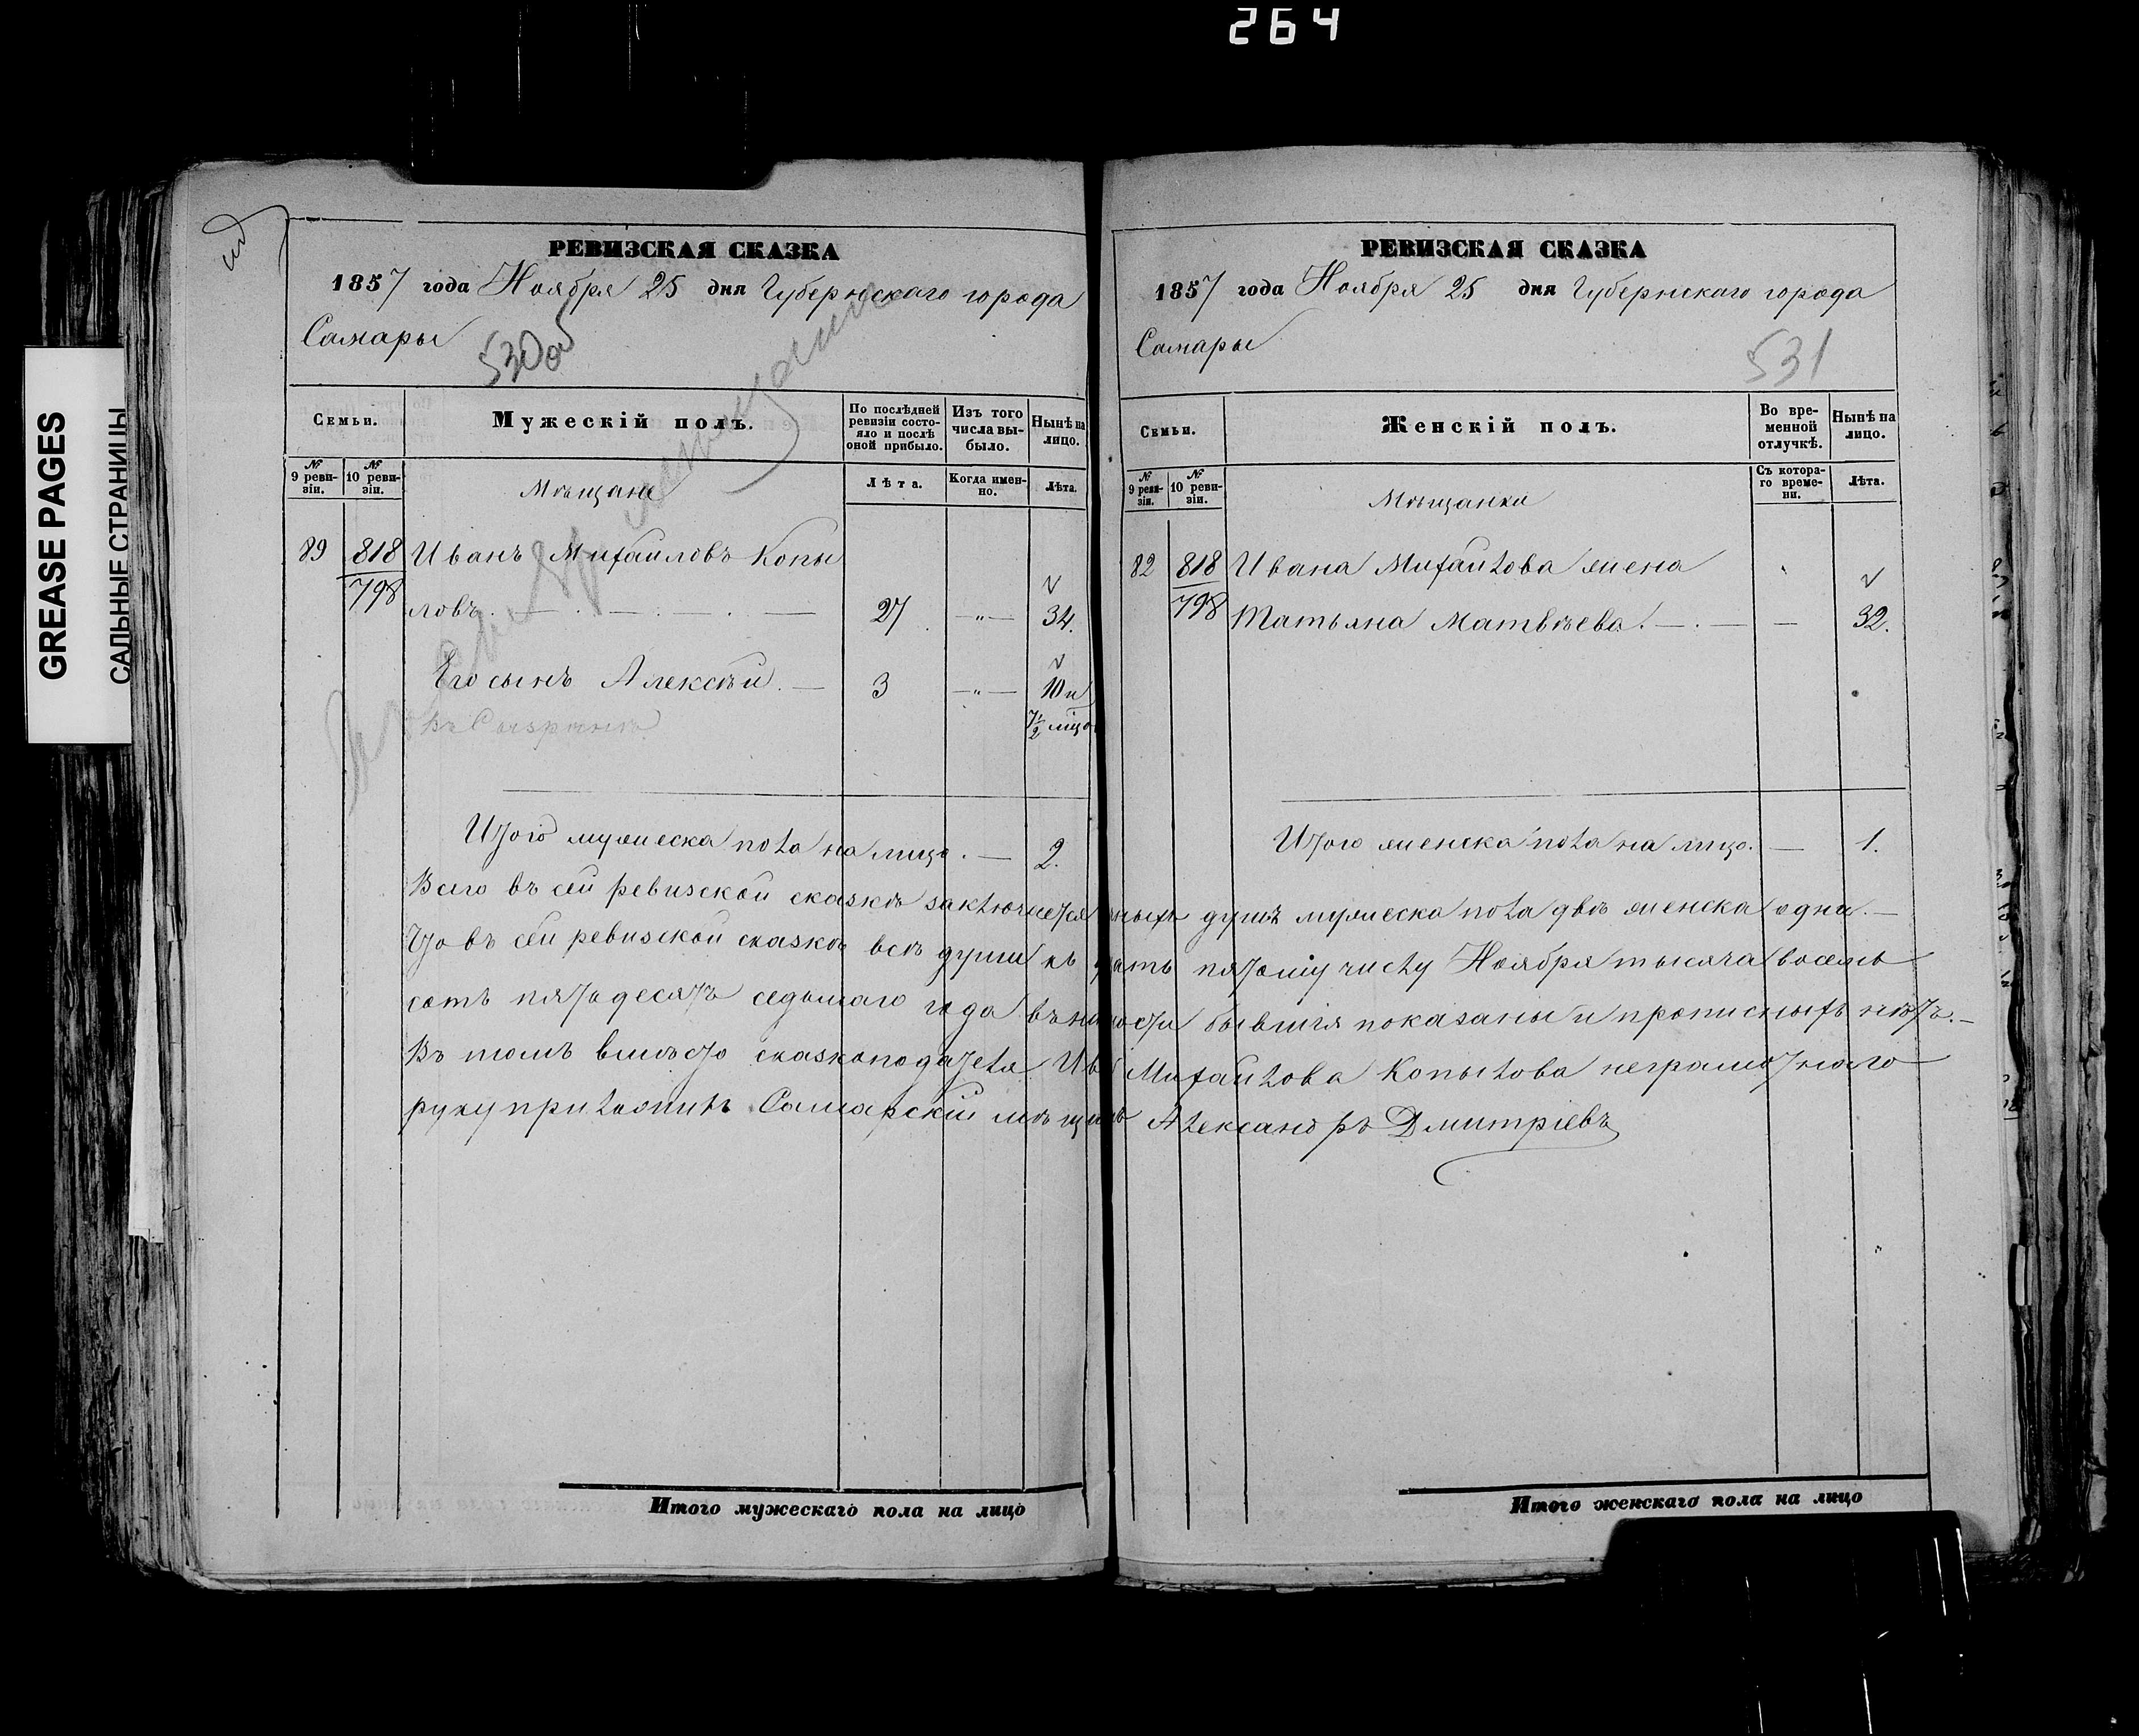 264
GREASE PAGES
САЛЬНЫЕ СТРАНИЦЫ
РЕВИЗСКАЯ СКАЗКА
1857 года Ноября 25 дня Губернскаго города
Самары
530об
Семьи.
Мужескій полъ.
По послѣдней ревизіи состояло и послѣ оной прибыло.
Изъ того числа выбыло.
Нынѣ на лицо.
№ 9 ревизіи.
№ 10 ревизіи.
Мѣщане
Лѣта.
Когда именно.
Лѣта.
89 818 Иванъ Михайловъ Копы
798 ловъ. 27 —"— 34.
Его сынъ Алексѣй. — 3 —"— 10 и
7/2 мѣцо
Итого мужеска пола на лицо. — 2.
РЕВИЗСКАЯ СКАЗКА
1857 года Ноября 25 дня Губернскаго города
Самары
531
Семьи.
Женскій полъ.
Во временной отлучкѣ.
Нынѣ на лицо.
№ 9 ревизіи.
№ 10 ревизіи.
Мѣщанки
Съ котораго времени.
Лѣта.
82 818 Ивана Михайлова жена
798 Татьяна Матвѣева. — 32.
Итого женска пола на лицо. — 1.
Всего въ сей ревизской сказкѣ заключается ныхъ душъ мужеска пола двѣ женска одна. —
Что въ сей ревизской сказкѣ всѣ души къ дцать пятому числу Ноября тысяча восемь
сотъ пятьдесятъ седьмаго года въ ности бывшія показаны и прописныхъ нѣтъ. —
Въ томъ вмѣсто сказкоподателя Ив Михайлова Копылова неграмотнаго
руку приложилъ Самарскій мѣщинъ Александръ Дмитріевъ
Итого мужескаго пола на лицо
Итого женскаго пола на лицо